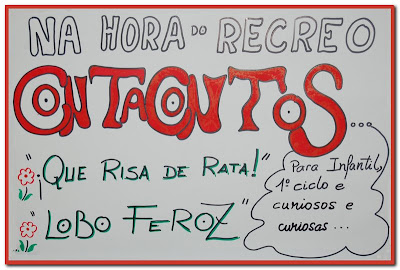 NA HORA DO RECREO
CONTACONTOS...
"¡QUE RISA DE RATA!"
"LOBO FEROZ"
Para Infantil,
1º ciclo e
curiosos e
curiosas...